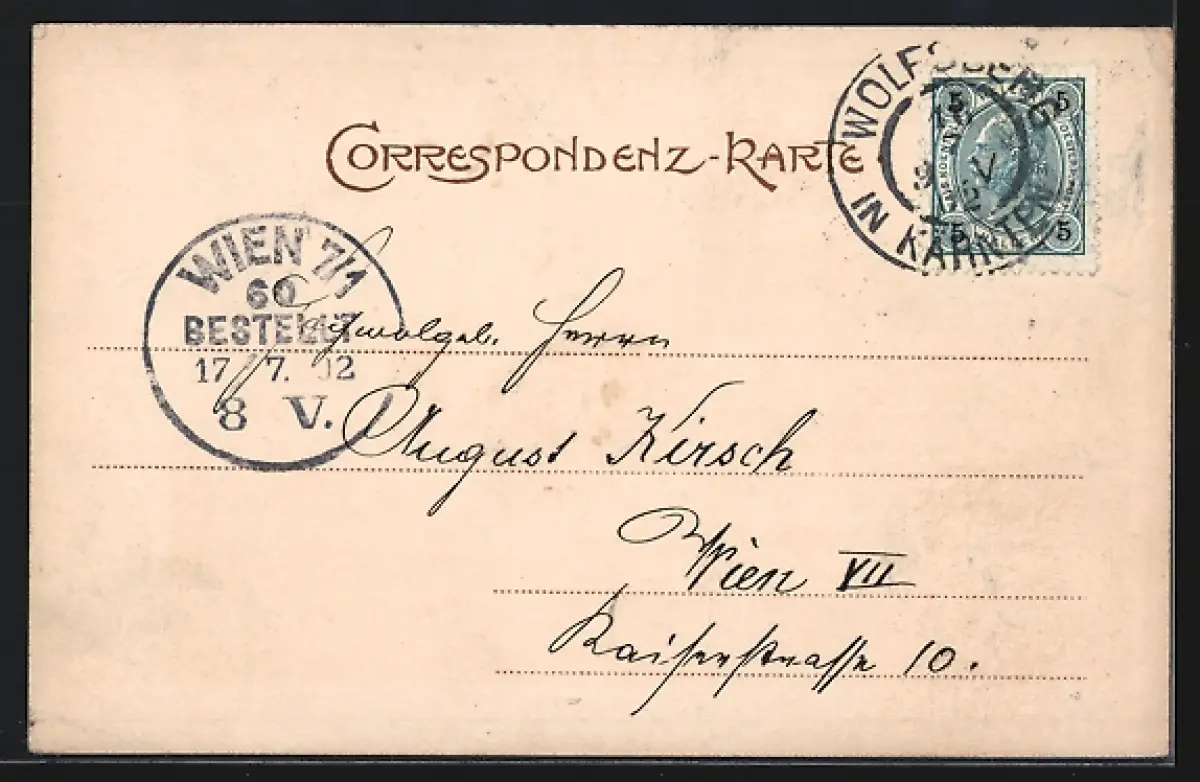 CORRESPONDENZ-KARTE
WOLFSBERG
IN KÄRNTEN
5 5
5 5
WIEN 7/1
60
BESTELLT
17 7. 02
8 V.
Herrn
August Kirsch
Wien VII
Kaiserstrasse 10.